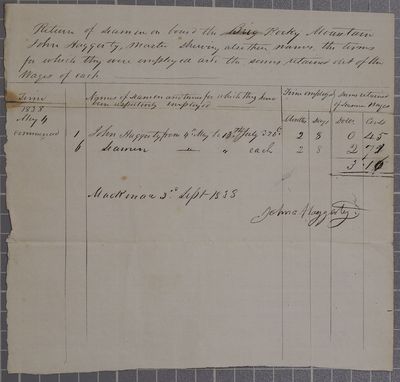 Return of Seamen on board the Brig Rocky Mountain
John Haggerty, Master shewing also their names the terms
for which they were employed and the sums retained out of the
Wages of each
Time Names of Seamen and time for which they have Time employed Sums retained
been respectively employed of Seamens Wages
1838 Months Days Dolls Cents
May 4
commenced 1 John Haggerty from 4th May to July 2 8 0 45
6 Seamen " " each 2 8 2 71
3.16
Mackinac 3d Sept 1838
John Haggerty